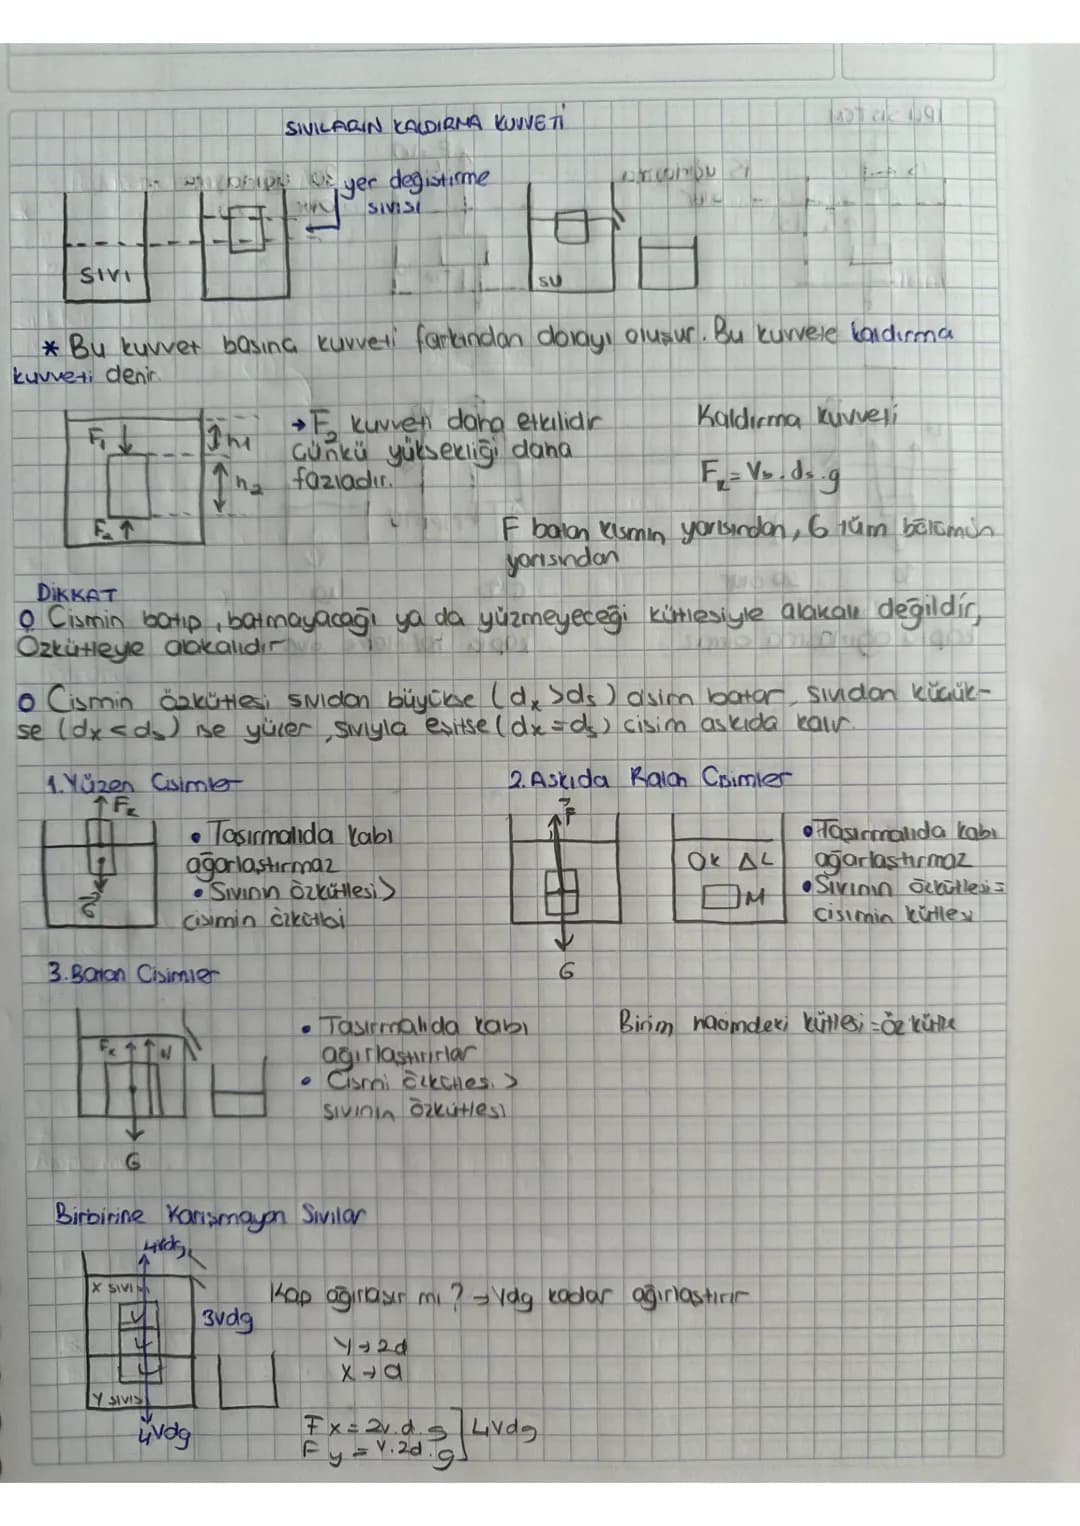 SIVILARIN KALDIRMA KUVVETİ
yer değiştirme
sıvısı
SIVI
su
* Bu kuvvet basınç kuvveti farkından dolayı oluşur. Bu kuvvete kaldırma
kuvveti denir.
F₁
h₁
h₂
F₂
→ F₂ kuvveti daha etkilidir
Çünkü yüksekliği daha
fazladır.
Kaldırma kuvveti
Fₖ = Vb . ds . g
F batan kısmın yarısından, G tüm bölümün
yarısından
DİKKAT
o Cismin batıp, batmayacağı ya da yüzmeyeceği kütlesiyle alakalı değildir,
Özkütleye alakalıdır
o Cismin özkütlesi sıvıdan büyükse (dx > ds) cisim batar, sıvıdan küçük-
se (dx < ds) ise yüzer, sıvıyla eşitse (dx = ds) cisim askıda kalır.
1. Yüzen Cisimler
Fk
G
• Taşırmalıda kabı
ağırlaştırmaz
• Sıvının özkütlesi >
cisimin özkütlesi
2. Askıda Kalan Cisimler
F
G
OK ΔL
M
• Taşırmalıda kabı
ağırlaştırmaz
• Sıvının özkütlesi =
cisimin kütlesi
3. Batan Cisimler
Fk
N
G
• Taşırmalıda kabı
ağırlaştırırlar
• Cismi özkütles. >
sıvının özkütlesi
Birim hacimdeki kütlesi = öz kütle
Birbirine Karışmayan Sıvılar
4vdg
X sıvı
V
V
V
Y sıvıs
4vdg
3vdg
Kap ağırlaşır mı? → Vdg kadar ağırlaştırır
Y → 2d
X → d
Fx = 2v.d.g
Fy = V.2d.g
4Vdg